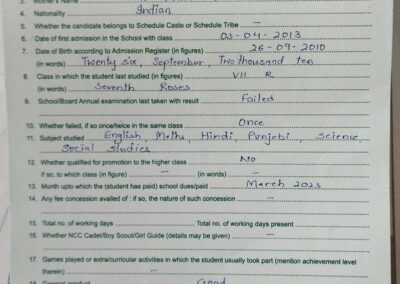 3. Mother's Name
4. Nationality Indian
5. Whether the candidate belongs to Schedule Caste or Schedule Tribe —
6. Date of first admission in the School with class 03-04-2013
7. Date of Birth according to Admission Register (in figures) 26-09-2010
(in words) Twenty six, September, Two thousand ten
8. Class in which the student last studied (in figures) VII R
(in words) Seventh Roses
9. School/Board Annual examination last taken with result Failed
10. Whether failed, if so once/twice in the same class Once
11. Subject studied English, Maths, Hindi, Punjabi, Science,
Social Studies
12. Whether qualified for promotion to the higher class No
If so, to which class (in figure) — (in words) —
13. Month upto which the (student has paid) school dues/paid March 2023
14. Any fee concession availed of : if so, the nature of such concession —
15. Total no. of working days Total no. of working days present
16. Whether NCC Cadet/Boy Scout/Girl Guide (details may be given) —
17. Games played or extra/curricular activities in which the student usually took part (mention achievement level
therein) —
18. General conduct Good